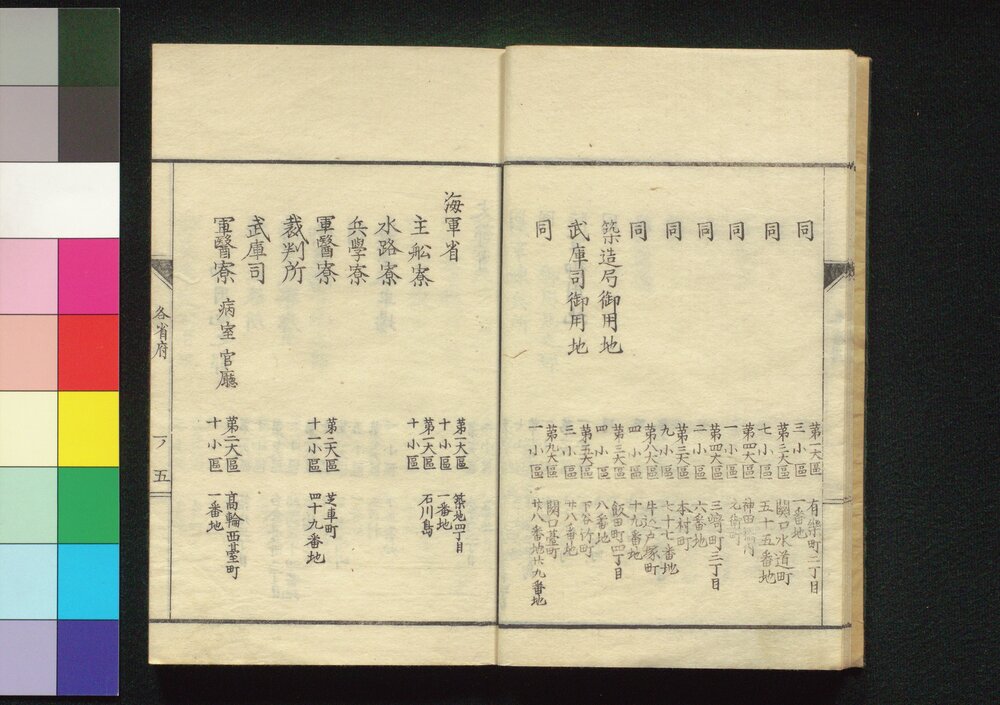 同 第一大區 有樂町二丁目
三小區 一番地
同 第三大區 関口水道町
七小區 五十五番地
同 第四大區 神田
一小區
同 第四大區 三崎町三丁目
二小區 六番地
同 第三大區 本村町
九小區 七十七番地
同 第八大區 牛込戸塚町
四小區 十九番地
築造局御用地 第三大區 飯田町四丁目
四小區 八番地
武庫司御用地 第五大區 下谷竹町
二小區 廿八番地
同 第九大區 関口臺町
一小區 廿八番地廿九番地
海軍省 第一大區 築地四丁目
十小區 一番地
主舩寮 第一大區 石川島
十小區
水路寮
兵學寮
軍醫寮 第二大區 芝車町
十一小區 四十九番地
裁判所
武庫司
軍醫寮 病室 官廳 第二大區 高輪西臺町
十小區 一番地
各省府 一ノ五